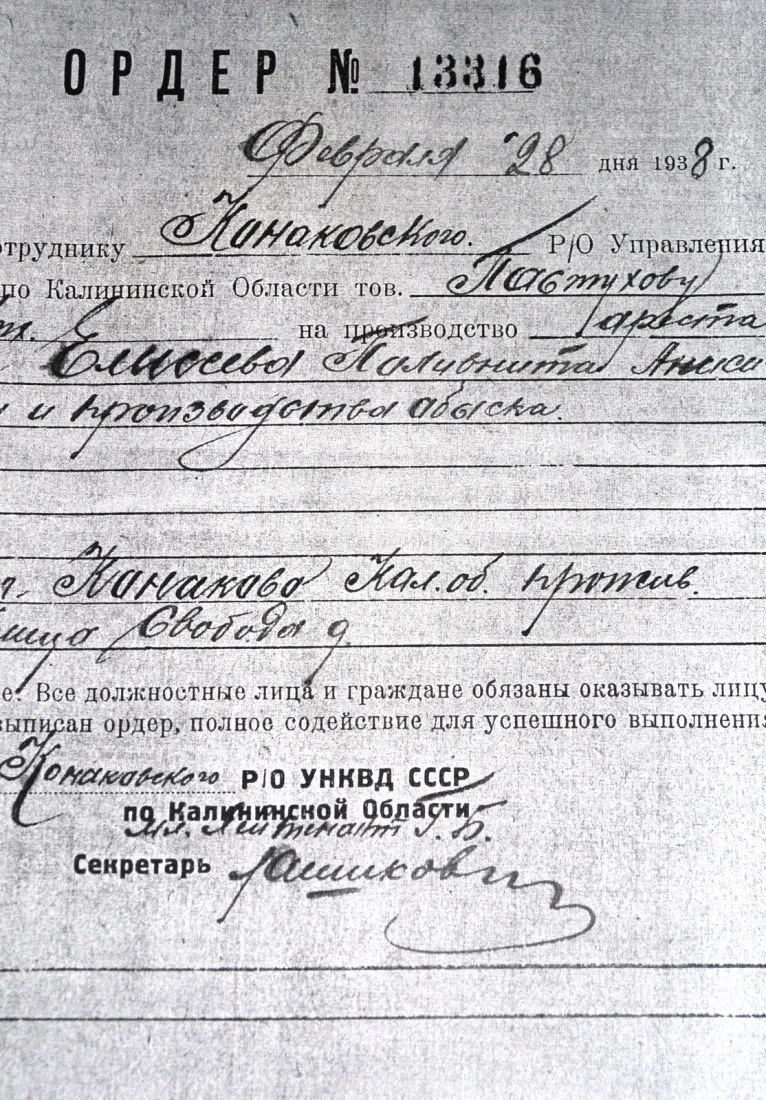 ОРДЕР № 13316
Февраля 28 дня 1938 г.
отруднику Конаковского. Р/О Управления
по Калининской Области тов. Пастухову
на производство ареста
Елисеева
и производства обыска.
Конаково Кал. об. прожив.
Свобода д.
е: Все должностные лица и граждане обязаны оказывать лицу
выписан ордер, полное содействие для успешного выполнения
Конаковского Р/О УНКВД СССР
по Калининской Области
Мл. Лейтенант Г. Б.
Секретарь